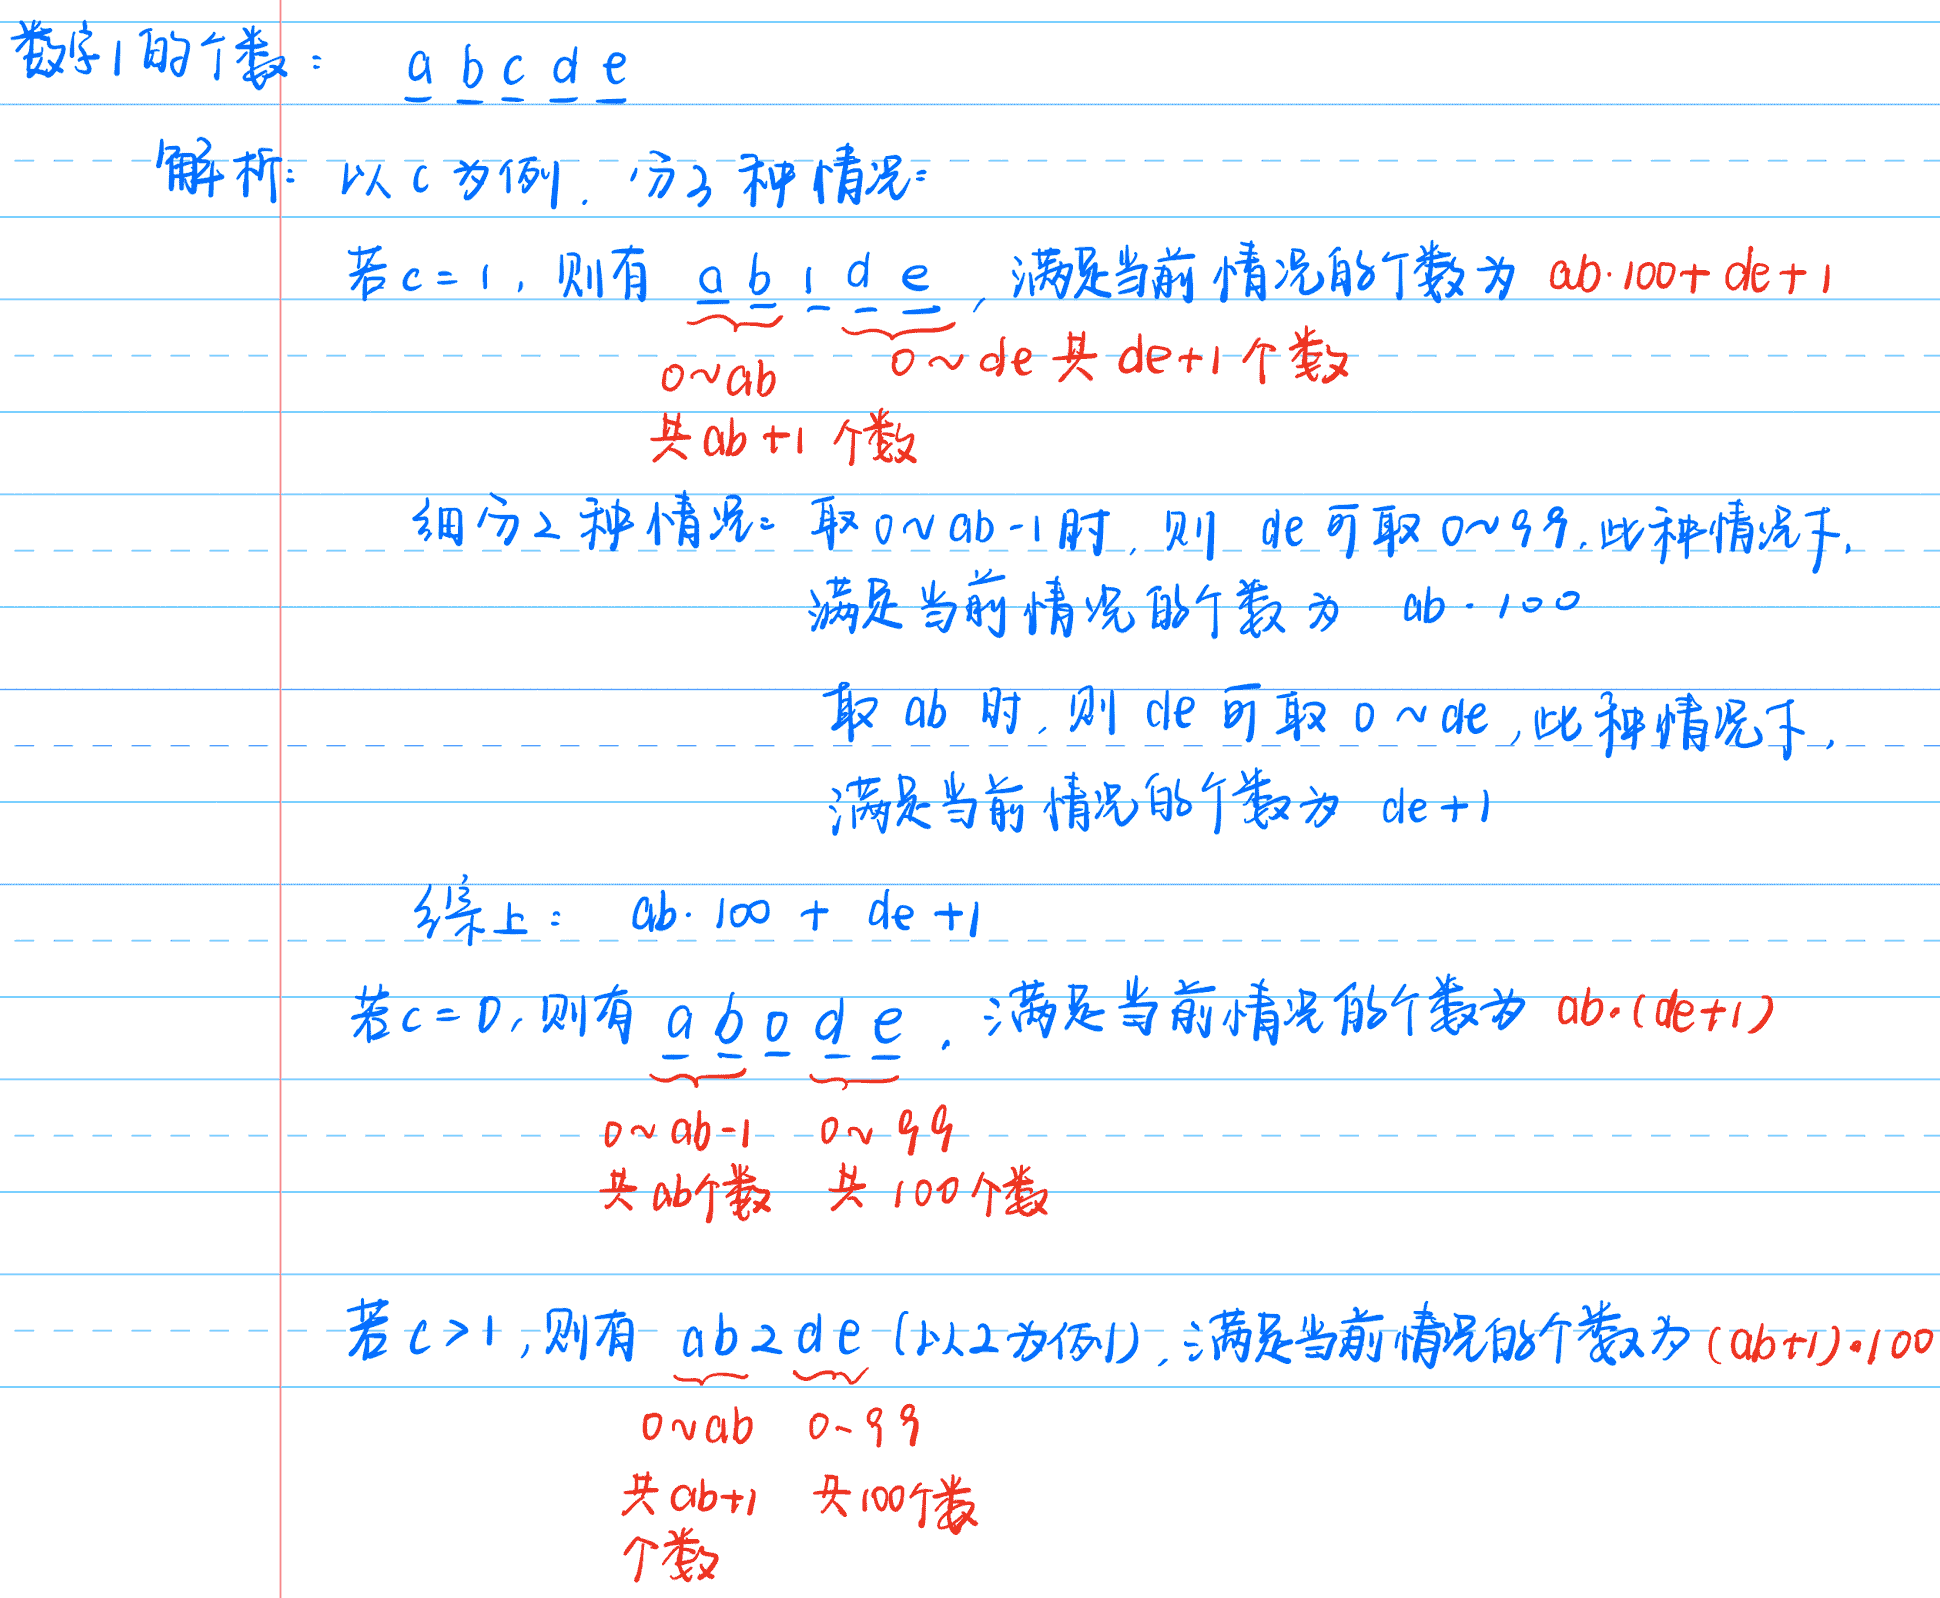 数字1的个数： a b c d e
解析：以c为例，分3种情况：
若c=1，则有 a b 1 d e，满足当前情况的个数为 ab·100+de+1
0~ab 0~de 共 de+1 个数
共ab+1 个数
细分2种情况：取0~ab-1时，则 de可取0~99，此种情况下，
满足当前情况的个数为 ab·100
取 ab 时，则 de 可取 0~de，此种情况下，
满足当前情况的个数为 de+1
综上： ab·100 + de+1
若c=0，则有 a b 0 d e，满足当前情况的个数为 ab·(de+1)
0~ab-1 0~99
共ab个数 共100个数
若c>1，则有 ab2de (以2为例)，满足当前情况的个数为(ab+1)·100
0~ab 0~99
共ab+1 共100个数
个数